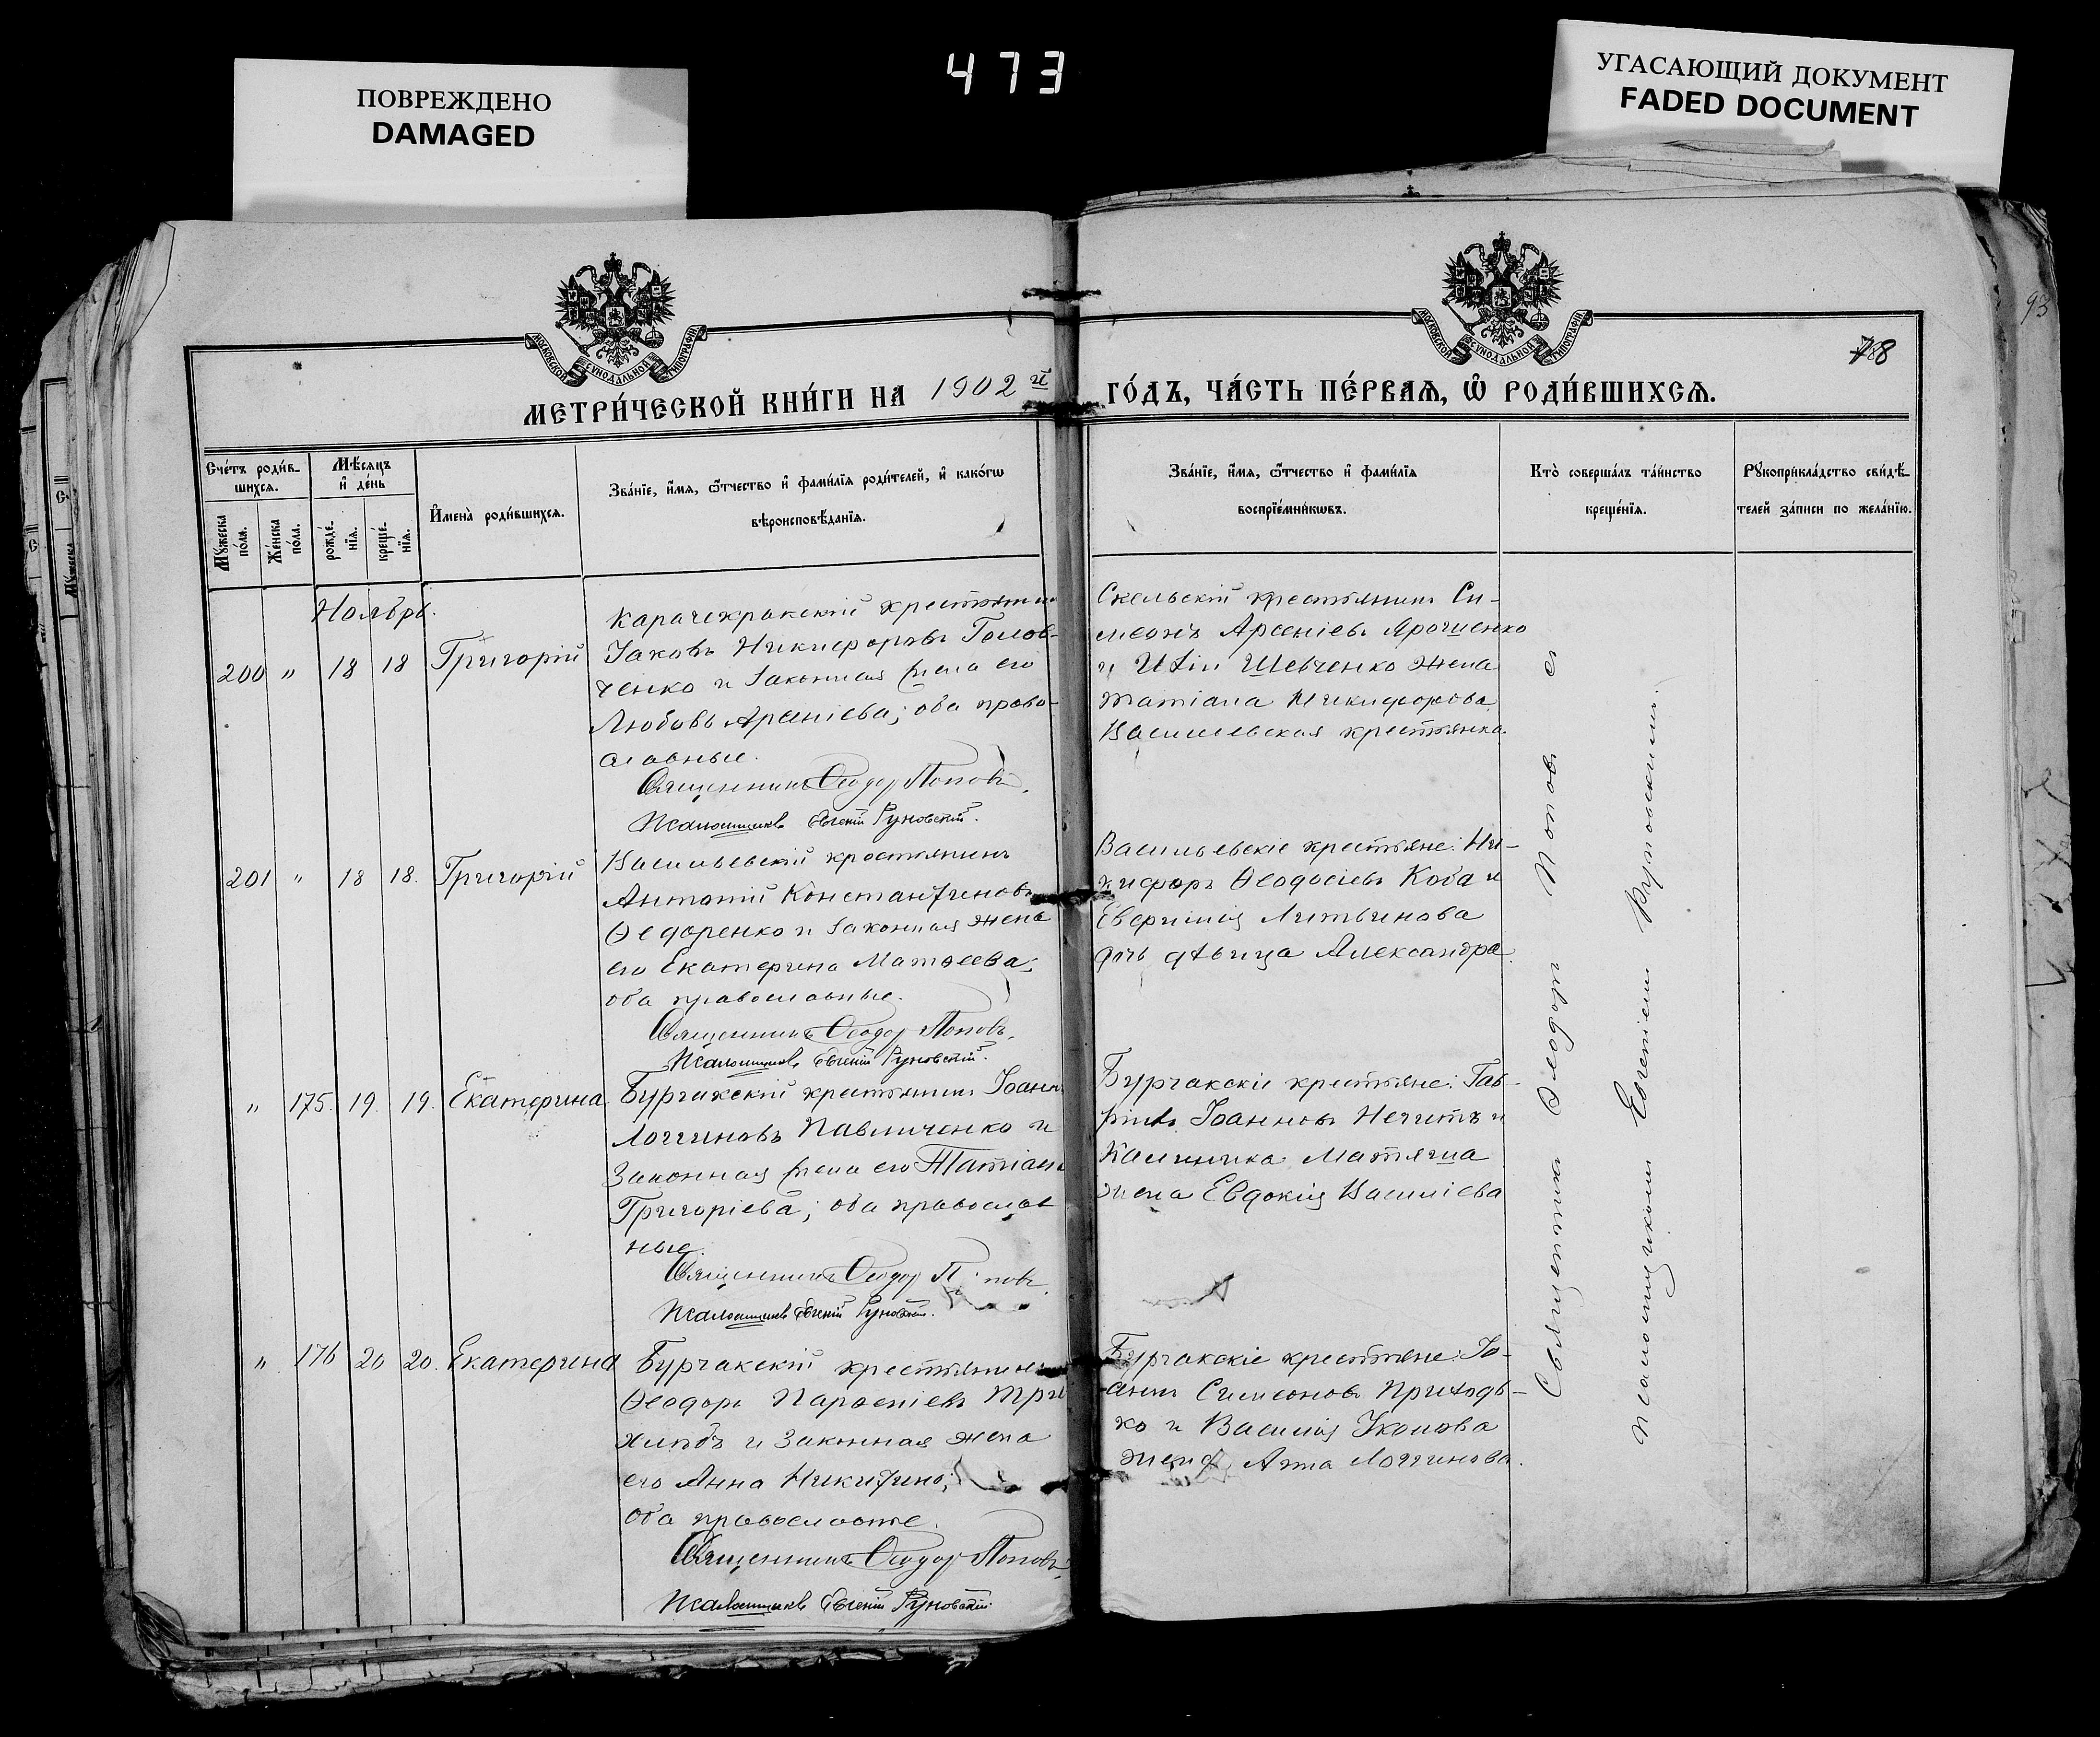 473
ПОВРЕЖДЕНО
DAMAGED
УГАСАЮЩИЙ ДОКУМЕНТ
FADED DOCUMENT
93
788
МОСКОВСКОЙ СѴНОДАЛЬНОЙ ТИПОГРАФІИ
МОСКОВСКОЙ СѴНОДАЛЬНОЙ ТИПОГРАФІИ
МЕТРИ́ЧЕСКОЙ КНИ́ГИ НА 1902 й ГО́ДЪ, ЧА́СТЬ ПЕ́РВАѦ, Ѽ РОДИ́ВШИХСѦ.
Сче́тъ роди́в-
шихсѧ.
Мꙋ́жеска по́ла.
Же́нска по́ла.
Мѣ́сѧцъ
и҆ де́нь
рожде́нїѧ.
креще́нїѧ.
И҆мена̀ роди́вшихсѧ.
Зва́нїе, и҆́мѧ, ѻ҆́тчество и҆ фами́лїѧ роди́телей, и҆ како́гѡ
вѣроисповѣ́данїѧ.
Зва́нїе, и҆́мѧ, ѻ҆́тчество и҆ фами́лїѧ
воспрїе́мникѡвъ.
Кто̀ соверша́лъ та́инство
креще́нїѧ.
Рꙋкоприкла́дство свидѣ́-
телей за́писи по жела́нїю.
Ноябрь.
200 " 18 18 Григорій
Карачекракскій крестьянин
Іаковъ Никифоровъ Голов-
ченко и законная жена его
Любовь Арсеніева; оба право-
славные.
Священникъ Ѳеодор Поповъ.
Псаломщикъ Евгеній Руновскій.
Скельскій крестьянинъ Си-
меонъ Арсеніевъ Ярошенко
и Иліи Шевченко жена
Татіана Никифорова
Васильевская крестьянка.
201 " 18 18. Григорій
Васильевскій крестьянинъ
Антоній Константиновъ
Ѳедоренко и законная жена
его Екатерина Матѳеева;
оба православные.
Священникъ Ѳеодор Поповъ.
Псаломщикъ Евгеній Руновскій.
Васильевскіе крестьяне: Ни-
кифоръ Ѳеодосіевъ Коба и
Литвинова
дочь дѣвица Александра.
" 175. 19. 19. Екатерина
Бурчакскій крестьянинъ Іоанн
Логгиновъ Павличенко и
законная жена его Татіана
Григоріева; оба православ
ные.
Священникъ Ѳеодор Поповъ.
Псаломщикъ Евгеній Руновскій.
Бурчакскіе крестьяне: Гав-
ріилъ Іоанновъ Нечитъ и
Калиника Матяша
жена Евдокія Василіева
" 176 20 20. Екатерина
Бурчакскій крестьянинъ
Ѳеодоръ Парѳеніевъ Три
и законная жена
его Анна Никитина;
оба православные.
Священникъ Ѳеодор Поповъ.
Псаломщикъ Евгеній Руновскій.
Бурчакскіе крестьяне: Іо-
аннъ Симеоновъ Приходь-
ко и Василія
жена Анна Логгинова.
Священникъ Ѳеодоръ Поповъ съ
псаломщикомъ Евгеніемъ Руновскимъ.